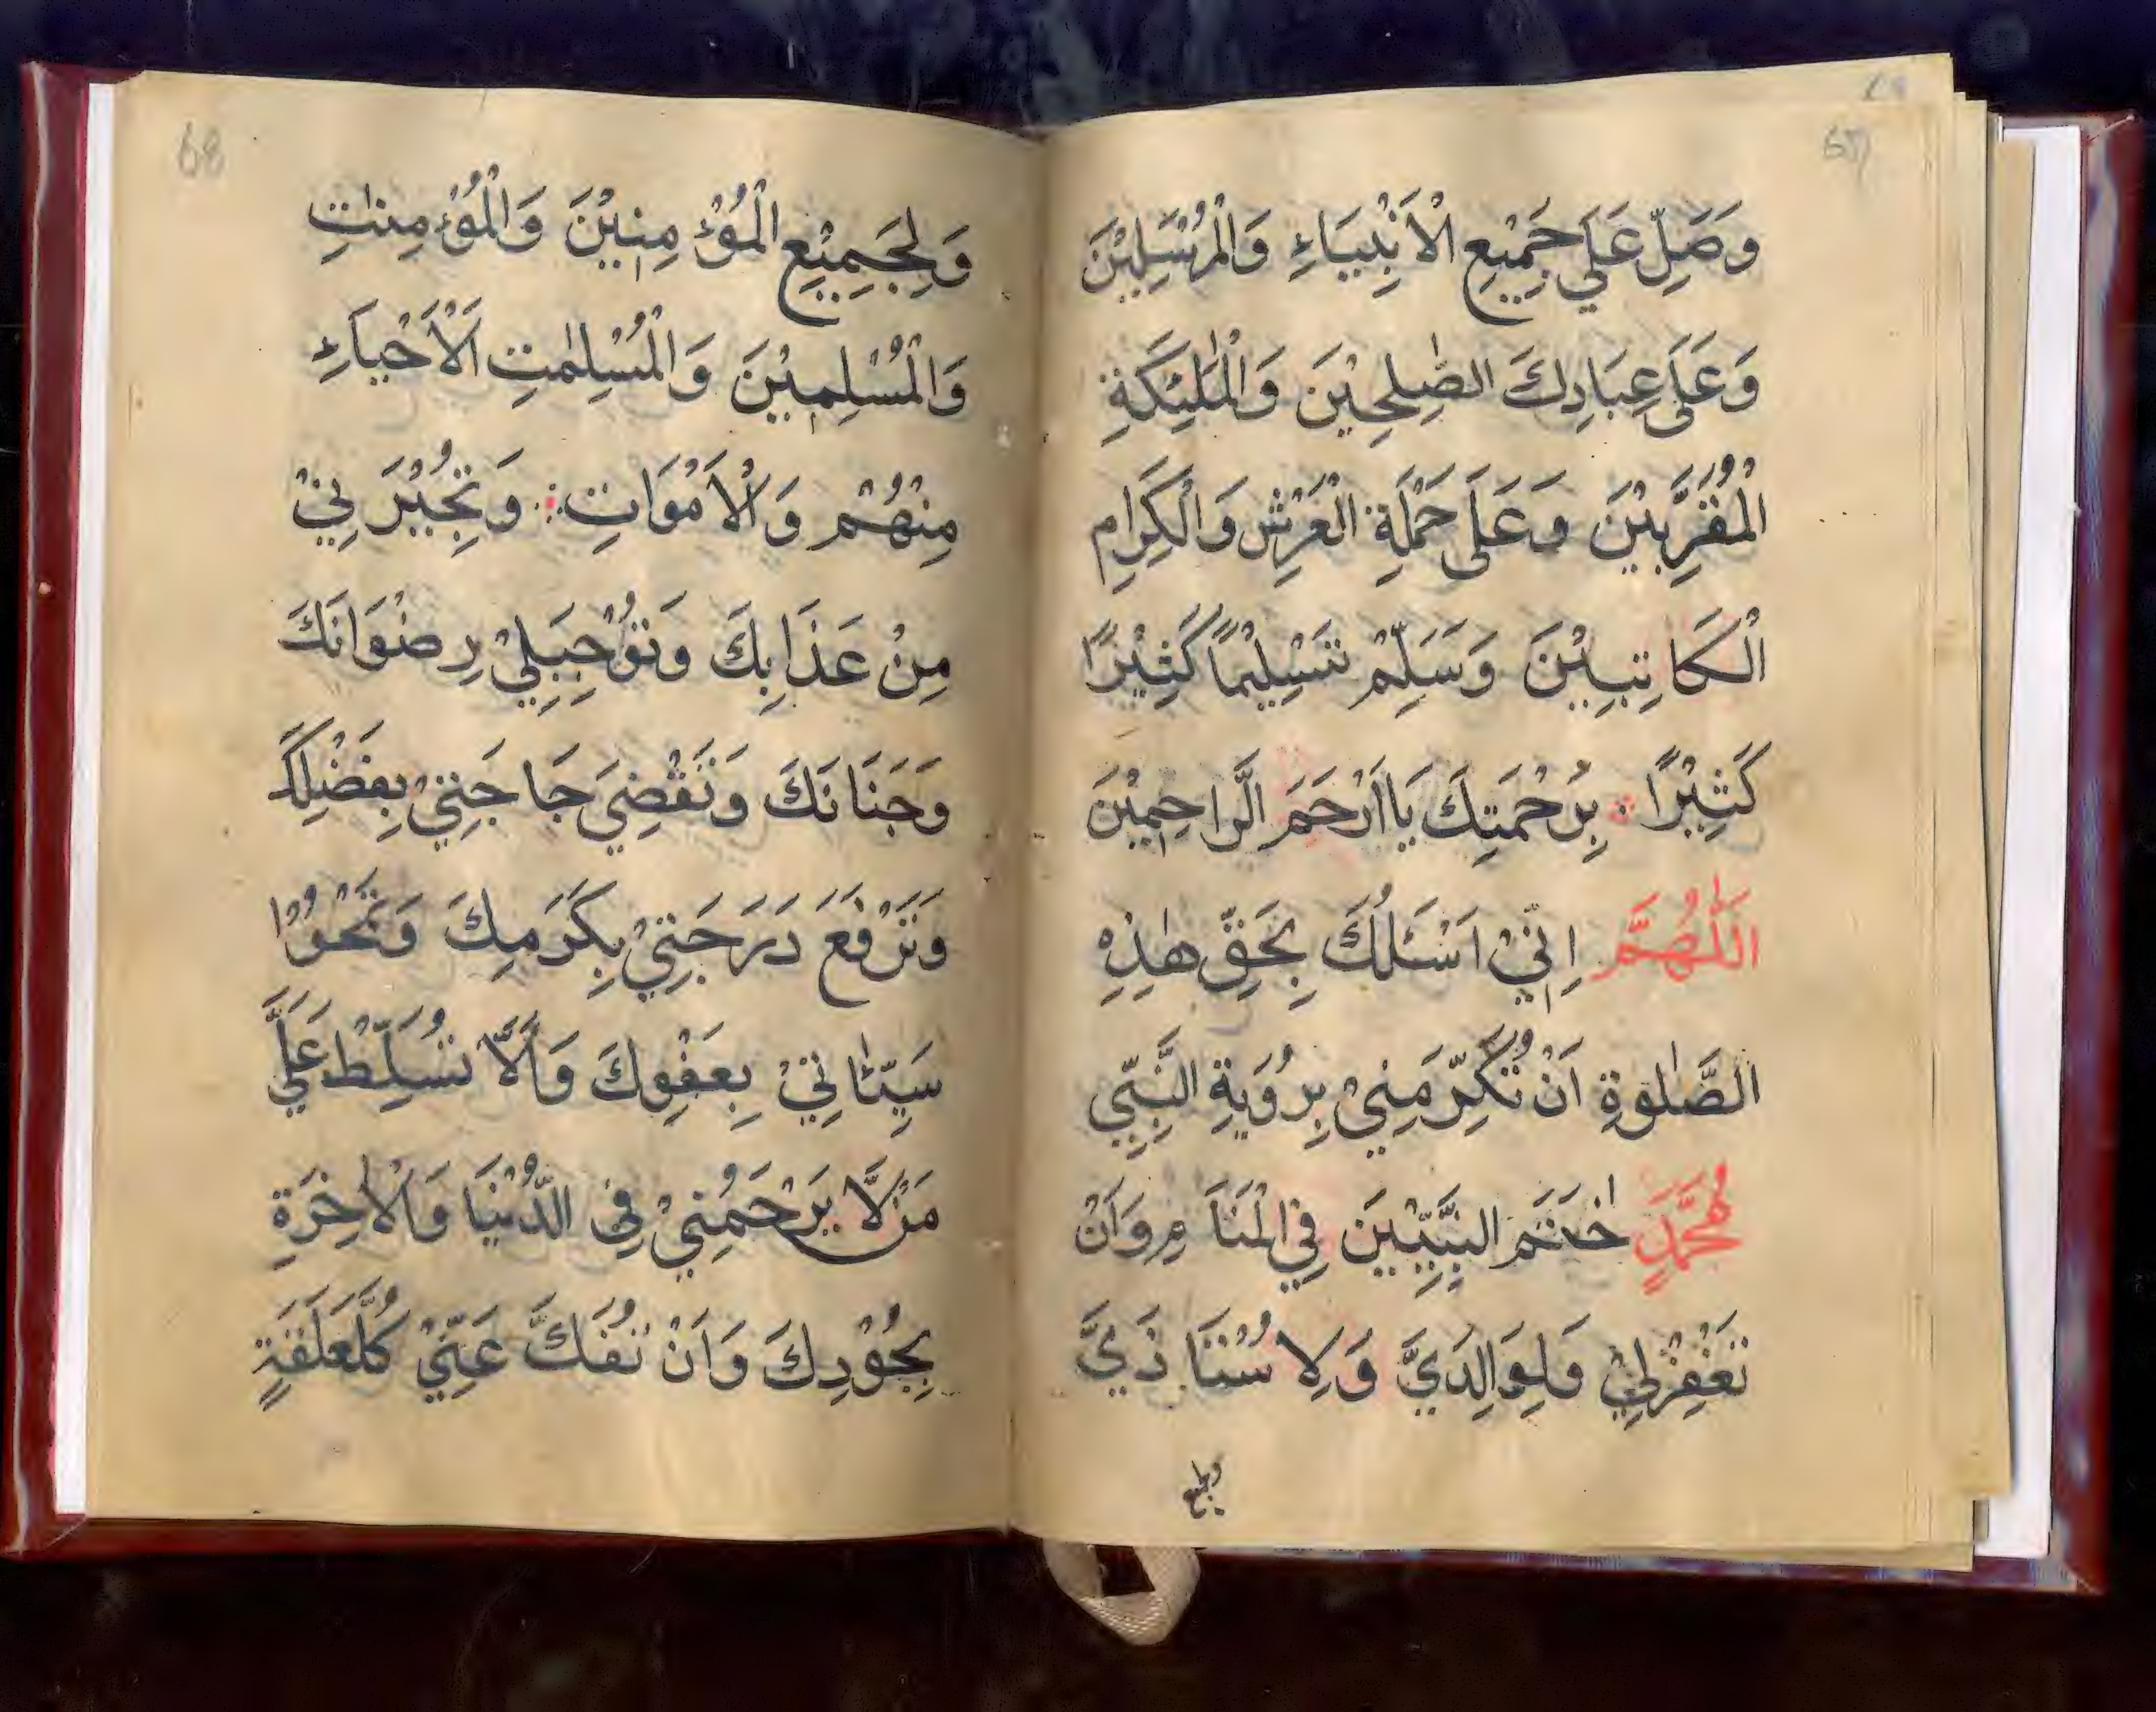 67
وَصَلِّ عَلَى جَمِيْعِ الْاَنْبِيَاءِ وَالْمُرْسَلِيْنَ
وَعَلَى عِبَادِكَ الصّٰلِحِيْنَ وَالْمَلٰئِكَةِ
الْمُقَرَّبِيْنَ وَعَلَى حَمَلَةِ الْعَرْشِ وَالْكِرَامِ
الْكَاتِبِيْنَ وَسَلِّمْ تَسْلِيْمًا كَثِيْرًا
كَثِيْرًا بِرَحْمَتِكَ يَا اَرْحَمَ الرَّاحِمِيْنَ
اَللّٰهُمَّ اِنِّيْ اَسْئَلُكَ بِحَقِّ هٰذِهِ
الصَّلٰوةِ اَنْ تُكَرِّمَنِيْ بِرُوْيَةِ النَّبِيِّ
مُحَمَّدٍ خٰتَمِ النَّبِيِّيْنَ فِي الْمَنَامِ وَاَنْ
تَغْفِرْلِيْ وَلِوَالِدَيَّ وَلِاُسْتَاذَيَّ
ولجميع
68
وَلِجَمِيْعِ الْمُؤْمِنِيْنَ وَالْمُؤْمِنٰتِ
وَالْمُسْلِمِيْنَ وَالْمُسْلِمٰتِ اَلْاَحْيَاءِ
مِنْهُمْ وَالْاَمْوَاتِ وَتُجِيْرَنِيْ
مِنْ عَذَابِكَ وَتُوْجِبَلِيْ رِضْوَانَكَ
وَجَنَانَكَ وَتَقْضِيَ حَاجَتِيْ بِفَضْلِكَ
وَتَرْفَعَ دَرَجَتِيْ بِكَرَمِكَ وَتَمْحُوْا
سَيِّئٰاتِيْ بِعَفْوِكَ وَاَلَّا تُسَلِّطْ عَلَيَّ
مَنْ لَّا يَرْحَمُنِيْ فِي الدُّنْيَا وَالْاٰخِرَةِ
بِجُوْدِكَ وَاَنْ تَفُكَّ عَنِّيْ كُلَّعَلَقَةٍ